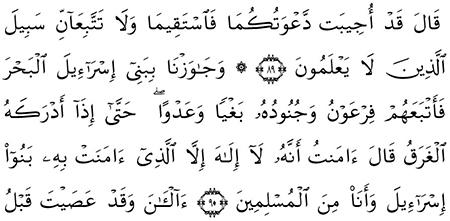 قَالَ قَدْ أُجِيبَت دَّعْوَتُكُمَا فَٱسْتَقِيمَا وَلَا تَتَّبِعَآنِّ سَبِيلَ
ٱلَّذِينَ لَا يَعْلَمُونَ ﴿٨٩﴾ ۞ وَجَـٰوَزْنَا بِبَنِىٓ إِسْرَٰٓءِيلَ ٱلْبَحْرَ
فَأَتْبَعَهُمْ فِرْعَوْنُ وَجُنُودُهُۥ بَغْيًا وَعَدْوًا ۖ حَتَّىٰٓ إِذَآ أَدْرَكَهُ
ٱلْغَرَقُ قَالَ ءَامَنتُ أَنَّهُۥ لَآ إِلَـٰهَ إِلَّا ٱلَّذِىٓ ءَامَنَتْ بِهِۦ بَنُوٓا۟
إِسْرَٰٓءِيلَ وَأَنَا۠ مِنَ ٱلْمُسْلِمِينَ ﴿٩٠﴾ ءَآلْـَٔـٰنَ وَقَدْ عَصَيْتَ قَبْلُ